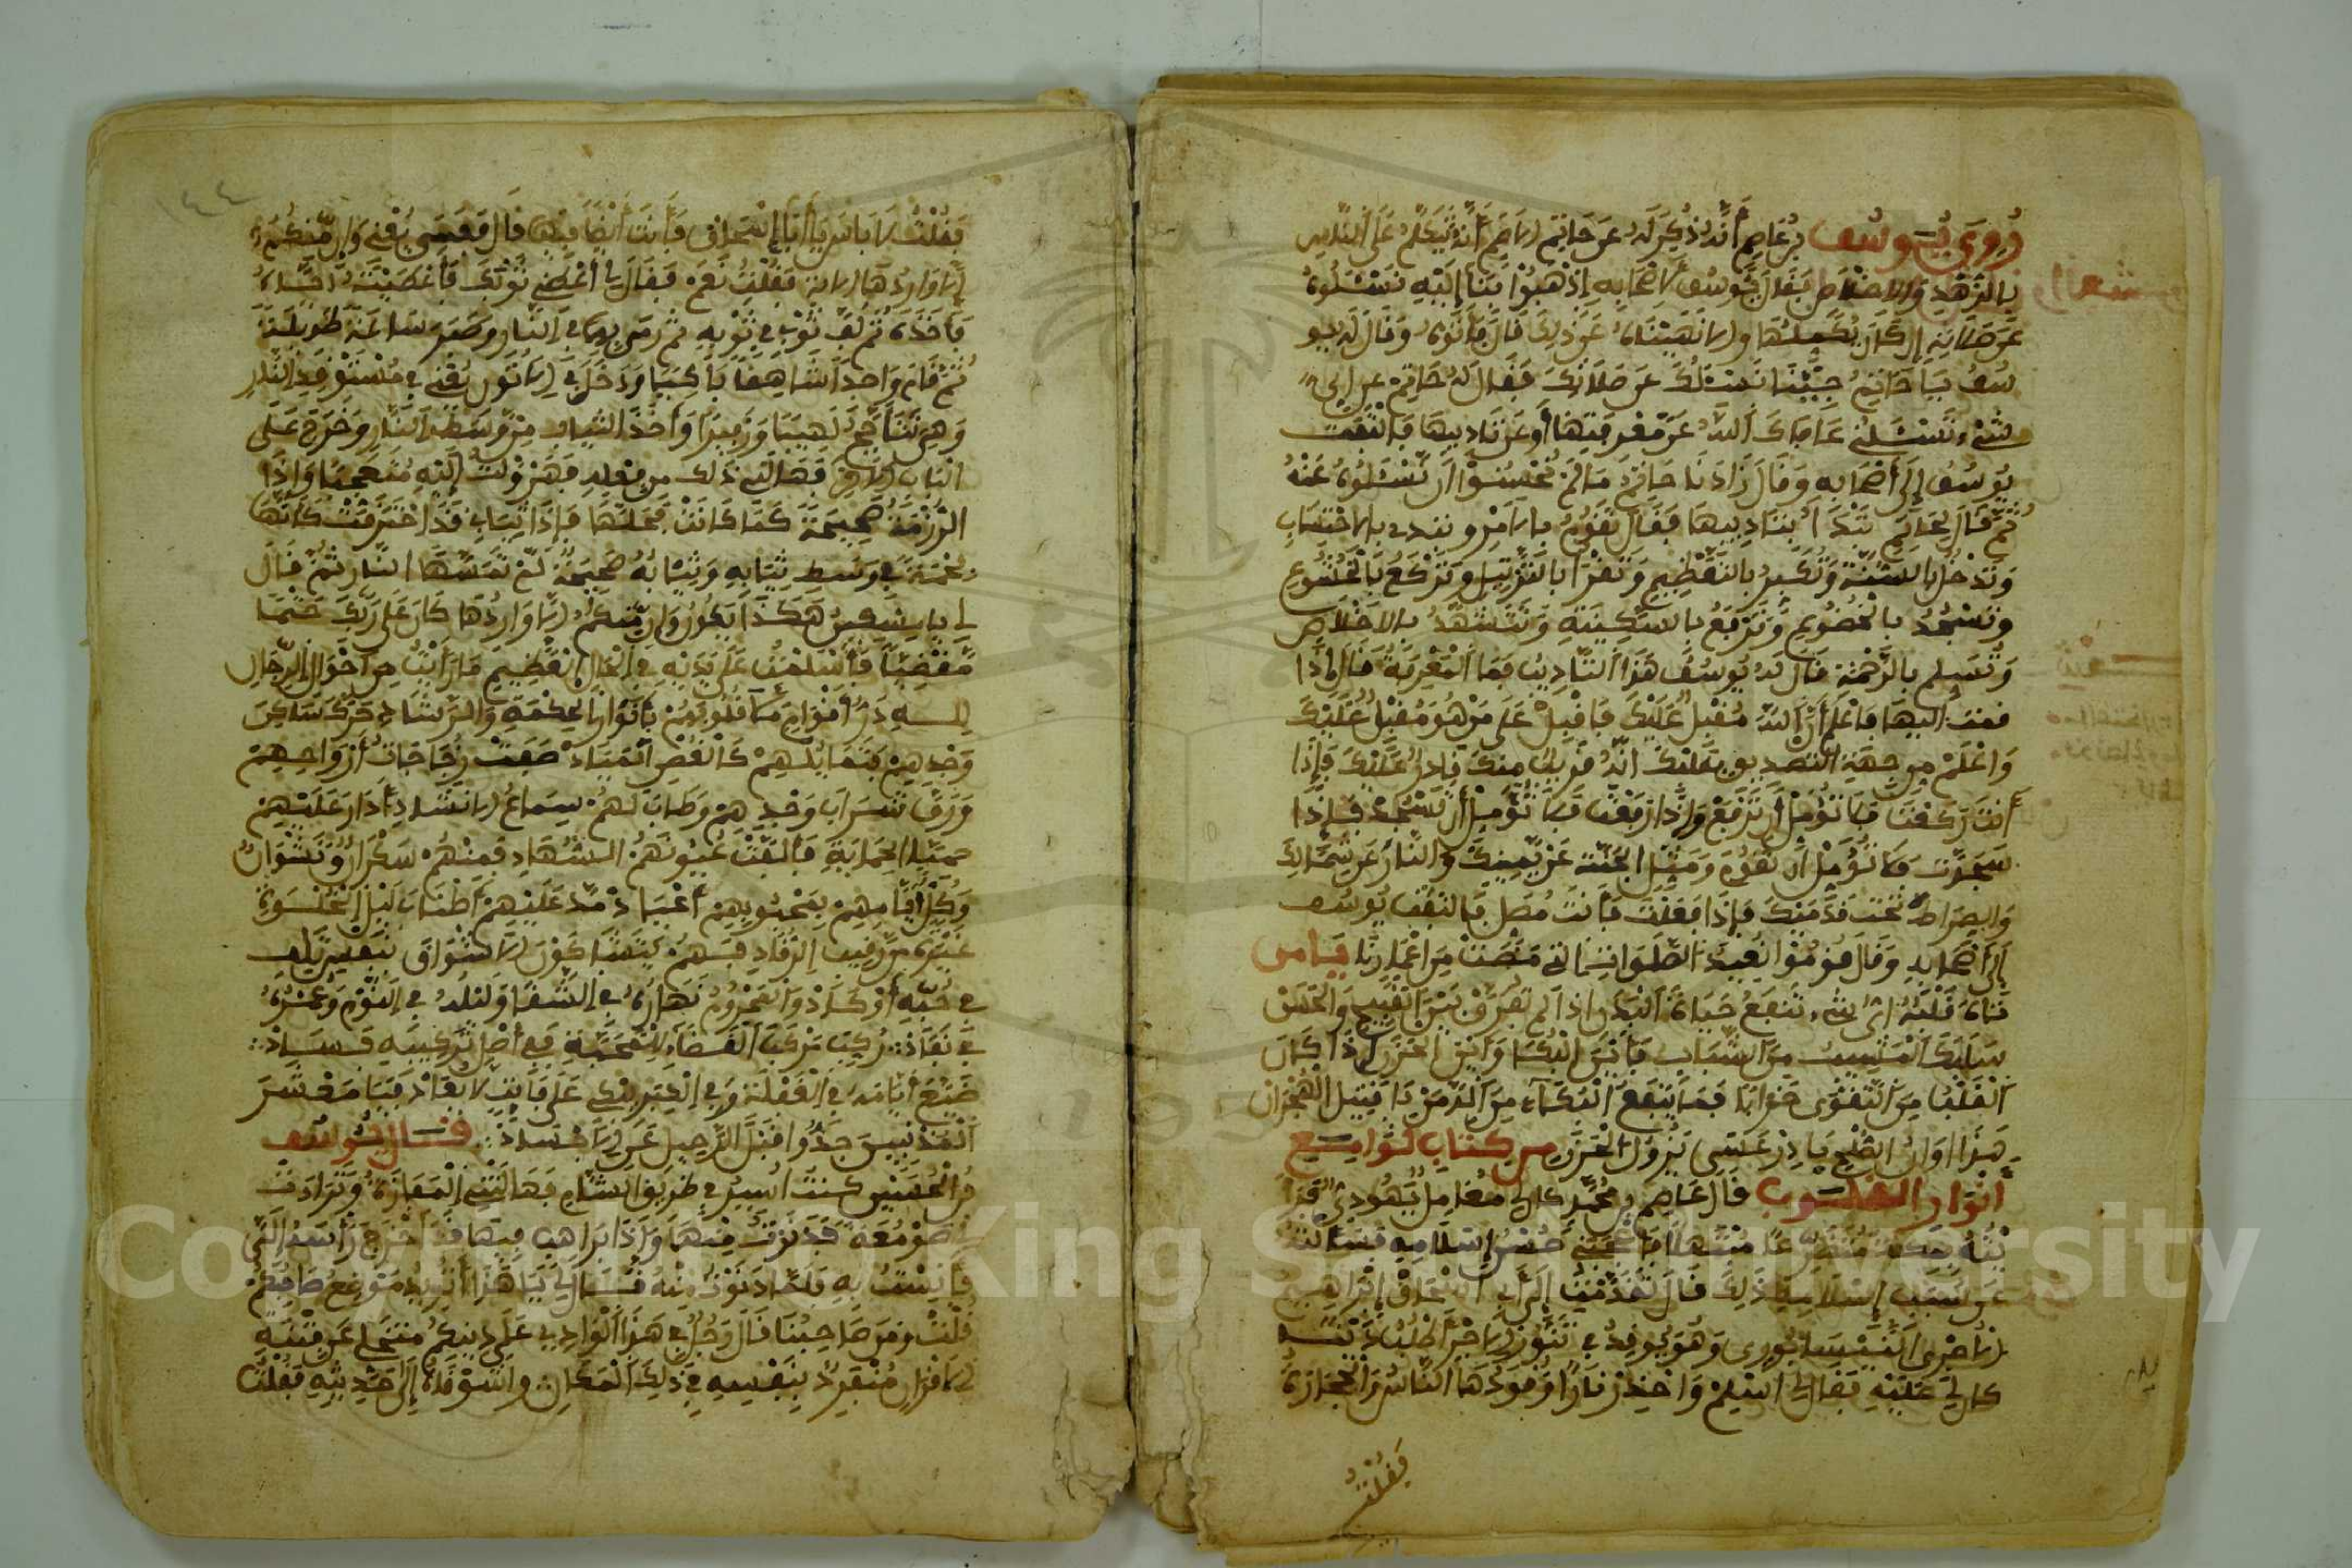 رُوِيَ يُوسُف بْن عَاصِم أَنَّهُ ذُكِرَ لَهُ عَنْ حَاتِم الأصَمّ أَنَّهُ يَتَكَلَّمُ عَلَى النَّاسِ
بِالزُّهْدِ وَالإخْلاصِ فَقَالَ يُوسُف لأصْحَابِهِ اِذْهَبُوا بِنَا إِلَيْهِ نَسْئَلُوهُ
عَنْ صَلَاتِهِ إِنْ كَانَ يُكْمِلُهَا وإلا نَهَيْنَاهُ عَنْ ذَلِكَ قَالَ فَأَتَوْهُ وَقَالَ لَهُ يو
سُفُ يَا حَاتِمُ جِئْنَا نَسْئَلُكَ عَنْ صَلَاتِكَ فَقَالَ لَهُ حَاتِمْ عن أي
شَيْءٍ تَسْئَلُنِي عَافَاكَ اللَّهُ عَنْ مَّعْرِفَتِهَا أَوْ عَنْ تَادِيبِهَا فَالْتَفَتَ
يُوسُف إِلَى أَصْحَابِهِ وَقَالَ زَادَنَا حَاتِم مَا لَمْ نُحْسِنْ أَن نَّسْئَلُوهُ عَنْهُ
ثُمَّ قَالَ لِحَاتِمٍ نَبْدَأُ بِتَادِيبِهَا فَقَالَ تَقُومُ بالأمْرِ و بالاحْتِسَابِ
وَتَدْخُلُ بِالسُّنَّةِ وَتُكَبِّرُ بِالتَّعْظِيمِ وَتَقْرَأُ بِالتَّرْتِيلِ وَتَرْكَعُ بِالْخُشُوعِ
وَتَسْجُدُ بِالْخُضُوعِ وَتَرْفَعُ بِالسَّكِينَةِ وَتَتَشَهَّدُ بِالإخْلَاصِ
وَتُسَلِّم بِالرَّحْمَة قَالَ لَهُ يُوسُفُ هَذَا التَّادِيبُ فَمَا الْمَعْرِفَةُ قَالَ إِذَا
قمت إليها فَاعْلَمْ أَنَّ اللَّهَ مُقْبِلٌ عَلَيْكَ فَاقْبِلْ عَلَى مَنْ هُوَ مُقْبِلٌ عَلَيْكَ
وَاعْلَمْ مِن جِهَةِ التَّصْدِيقِ بِقَلْبِكَ أنَّهُ قَرِيبٌ مِنْكَ قَادِرٌ عَلَيْكَ فَإِذَا
أَنْتَ رَكَعْتَ فَلا تُؤَمِّلْ أَنْ تَرْفَعْ وَإِذَا رَفَعْتَ فَلَا تُؤَمِّلْ أَنْ تَسْجُدْ فَإِذَا
سَجَدْتَ فَلا تُؤَمِّلْ أَنْ تَقُومَ وَمَثِّلِ الْجَنَّةَ عَنْ يَّمِينِكَ وَالنَّارَ عَنْ شِمَالِكَ
وَالصِّرَاطَ تَحْتَ قَدَمَيْكَ فَإِذَا فَعَلْتَ فَأَنْتَ مُصَلٍّ فَالْتَفَتَ يُوسُف
إِلَى أَصْحَابِهِ وَقَالَ قُومُوا نُعِيدُ الصَّلَوَاتِ الَّتِي مَضَتْ مِنْ أَعْمَارِنَا فيا من
مَاتَ قَلْبُهُ أيّ شيء تَنْفَعُ حَيَاةُ الْبَدَنِ إِذَا لَمْ تُفَرِّقْ بَيْنَ الْقَبِيحِ وَالْحَسَنْ
سَلَبَكَ الْمَشِيبُ مِنَ الشَّبَابِ فَأَيْنَ الْبُكَا وَأَيْنَ الْحَزَنْ إِذَا كَانَ
الْقَلْبُ مِنَ التَّقْوَى خَرَابًا فَمَا يَنْفَعُ الْبُكَاءُ مِنَ الدِّمَنْ يَا قَتِيلَ الْهِجْرَانْ
هَذَا أوَانُ الصُّلْحِ بَادِرْ عَسَى يَزُولُ الْحَزَنْ من كتاب لوامع
أنوار القلوب قَالَ عَاصِم بْن مُحَمَّد كان لي مُعَامِلٌ يَهُودِيٌّ فَرَأَ
يْتُهُ بِمَكَّةَ مُتَضَرِّعًا مُبْتَهِلًا فَأَعْجَبَنِي حُسْنُ إِسْلَامِهِ فَسَأَلْتُهُ
عَنْ سَبَبِ إِسْلَامِهِ ذَلِكَ قَالَ تَقَدَّمْتُ إِلَى أَبِي إِسْحَاقْ إِبْرَاهِيم
الآجُرِّي النَّيْسَابُورِي وَهُوَ يُوقِدُ فِي تَنُّورِ الآجُرِّ أَطْلُبُ دَيْنًا
كان لي عَلَيْهِ فَقَالَ لِي اَسْلِمْ وَاحْذَرْ نَارًا وَقُودُهَا النَّاسُ وَالْحِجَارَةُ
فَقُلْتُ
فَقُلْتُ لا بَاسَ يَا أَبَا إِسْحَاق فَأَنْتَ أَيْضًا فِيهَا قَالَ فَعَسَى تُعْنِي وَإِن مِّنكُمُ
إِلَّا وَارِدُهَا الآية فَقُلْتُ نَعَمْ فَقَالَ لِي أَعْطِنِي ثَوْبَكَ فَأَعْطَيْتُهُ
فَأَخَذَهُ ثُمَّ لَفَّ ثَوْبِي فِي ثَوْبِهِ ثُمَّ رَمَى بِهِمَا فِي النَّارِ وَصَبَرَ سَاعَةً طَوِيلَةً
ثُمَّ قَامَ وَاجِدًا شَاهِقًا بَاكِيًا وَدَخَلَ فِي الأتُون يَعْنِي فِي مُسْتَوْقَدِ النَّارِ
وَهِيَ تَتَأَجَّجُ لَهِيبًا وَزَفِيرًا وَأَخَذَ الثِّيَابَ مِنْ وَسَطِ النَّارِ وَخَرَجَ عَلَى
الْبَابِ الآخَر فَهَالَنِي ذَلِكَ مِن فِعْلِهِ فَهَرْوَلْتُ إِلَيْهِ مُتَعَجِّبًا وَإِذَا
الرُّزْمَة صَحِيحَةً كَمَا كَانَتْ فَحَلَّهَا فَإِذَا ثِيَابِي قَدِ احْتَرَقَتْ كَأَنَّهَا
فَحْمَة فِي وَسَطِ ثِيَابِهِ وَثِيَابُهُ صَحِيحَةٌ لَمْ تَمَسَّهَا النَّارُ ثُمَّ قَالَ
لِي يا مِسْكِينُ هَكَذَا يَكُونُ وَإِن مِّنكُمُ إِلَّا وَارِدُهَا كَانَ عَلَى رَبِّكَ حَتْمًا
مَّقْضِيًّا فَأَسْلَمْتُ عَلَى يَدَيْهِ فِي الْحَالِ الْعَظِيمِ مَا رَأَيْتُ مِنْ أَحْوَالِ الرِّجَالِ
لله دَرُّ أَقْوَامٍ مَلأ قُلُوبَهُمْ بِأَنْوَارِ الْحِكْمَةِ وَالرَّشَادِ حَرَّكَ سَاكِنَ
وَجْدِهِمْ فَتَمَايُلُهُمْ كَالْغُصْنِ الْمَيَّادْ صَفَتْ زُجَاجَاتُ أَرْوَاحِهِمْ
وَرَقَّ شَرَابُ وَجْدِهِمْ وَطَابَ لَهُمْ سِمَاعُ الإنْشَادِ أَدَارَ عَلَيْهِمْ
حُمَيَّا الْحِمَايَةِ فَأَلِفَتْ عُيُونُهُمُ السُّهَادِ فَمِنْهُمْ سَكْرَانُ وَنَشْوَانُ
وَكُلُّ أَيَّامِهِمْ بِمَحْبُوبِهِمْ أَعْيَادْ مَدَّ عَلَيْهِمْ أَطْنَابَ لَيْلِ الْخُلْوَةِ
غَيْرَةً مِنْ رَقِيبِ الرُّقَادِ فَهُمْ يَتَشَاكَوْنَ الأشْوَاقَ
فِي حُبِّهِ أَوْ كَادْ وَالْمَحْرُومُ نَهَارُهُ فِي الشَّقَا وَلَيْلُهُ فِي النَّوْمِ وَعُمْرُهُ
فِي نَفَادْ رَكِبَ مَرْكَبَ الْقَضَاءِ فَفِي أَصْلِ تَرْكِيبِهِ فَسَادْ
ضَيَّعَ أَيَّامَهُ فِي الْغَفْلَة وَفِي الْكِبَرِ يبكي عَلَى فَائِتٍ لا يُعَادْ فَيَا مَعْشَرَ
الْمُذْنِبِينَ جِدُّوا قَبْلَ الرَّحِيلِ عَنِ الأجْسَادْ قال يوسف
بْنُ الْحُسَيْن كنت أَسِيرُ فِي طَرِيقِ الشَّامِ فَهَالَتْنِي الْمَفَازَةُ وَتَرَادَتْ
لِي صَوْمَعَةٌ فَدَنَوْتُ مِنْهَا وَإِذَا بِرَاهِبٍ فِيهَا قَدْ أَخْرَجَ رَأْسَهُ إِلَيَّ
فَأَنِسْتُ بِهِ فَلَمَّا دَنَوْتُ مِنْهُ قَالَ لِي يَا هَذَا أَتُرِيدُ مَوْضِعَ صَاحِبِكُمْ
قُلْتُ وَمَنْ صَاحِبُنَا قَالَ رَجُلٌ فِي هَذَا الْوَادِي عَلَى دِينِكُمْ مُتَخَلٍّ عَنْ فِتْنَةِ
الأقْرَانِ مُنْفَرِدٌ بِنَفْسِهِ فِي ذَلِكَ الْمَكَانِ وَاشَوْقَاهُ إِلَى حَدِيثِهِ فَقُلْتُ